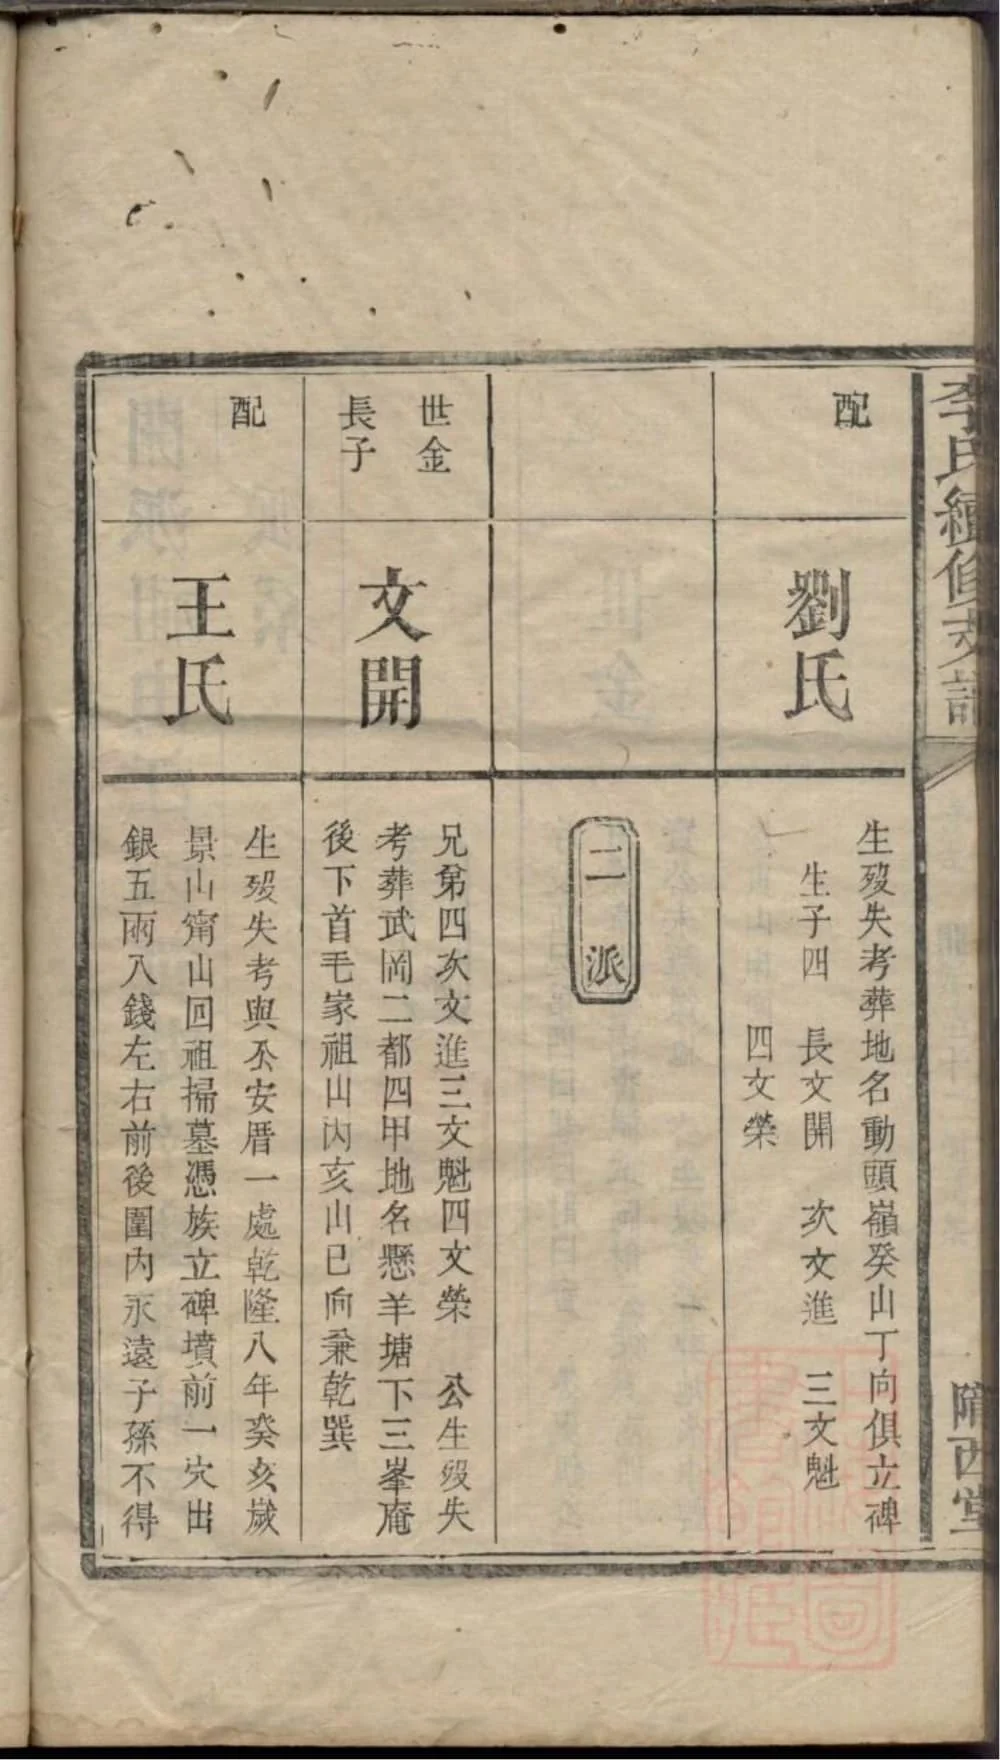 李氏續修支譜
隴西堂
配
劉氏
生歿失考葬地名動頭嶺癸山丁向俱立碑
生子四 長文開 次文進 三文魁
四文榮
二派
世金
長子
文開
兄弟四次文進三文魁四文榮 公生歿失
考葬武岡二都四甲地名懸羊塘下三峯庵
後下首毛家祖山內亥山巳向兼乾巽
配
王氏
生歿失考與公安厝一處乾隆八年癸亥歲
景山甯山回祖掃墓憑族立碑墳前一穴出
銀五兩八錢左右前後圍內永遠子孫不得